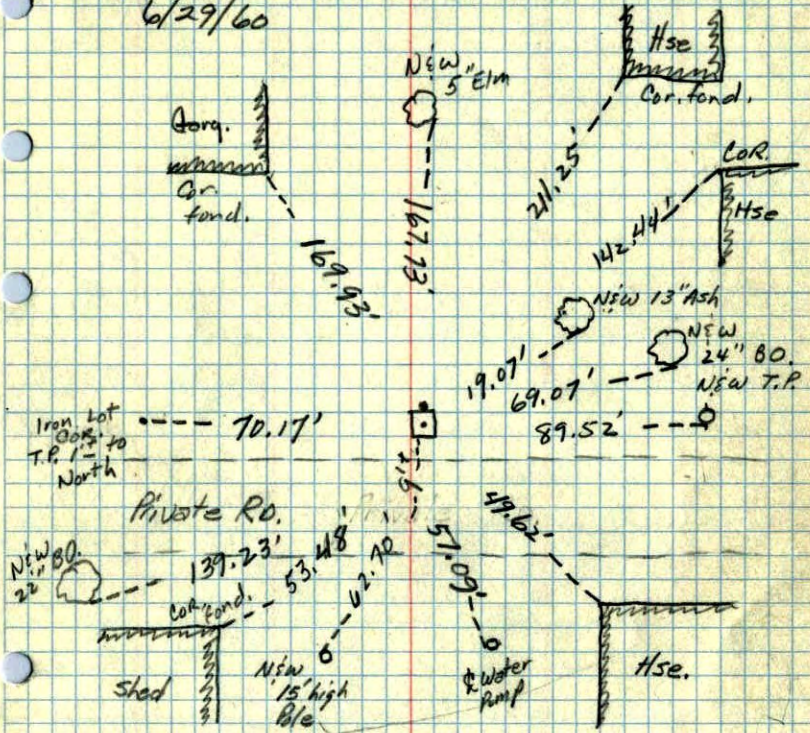 6/29/60
Hse
Cor. fond.
N&W
5" Elm
Garg.
Cor.
fond.
211.25'
COR.
Hse
142.44'
167.73'
169.93'
N&W 13" Ash
N&W
24" BO.
N&W T.P.
19.07'
69.07'
89.52'
Iron Lot
Cor.
T.P. 1'± to
North
70.17'
Private RD.
Private
49.62'
N&W
22" BO.
139.23'
53.48'
62.70
57.09'
Cor. fond.
Shed
N&W
15' high
Pole
℄ Water
Pump
Hse.